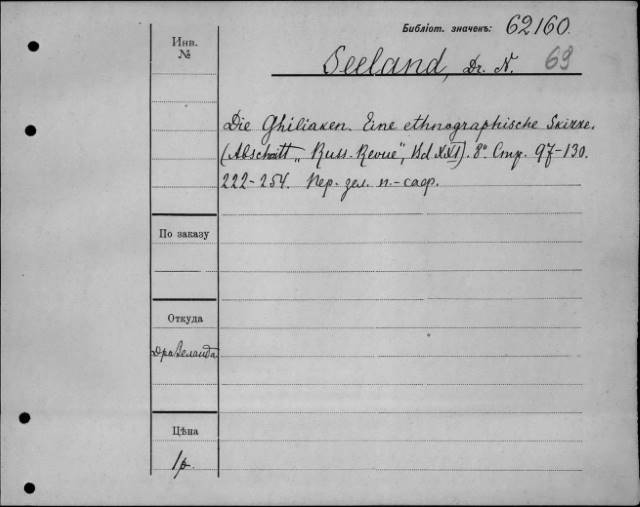 Библіот. значекъ: 62160.
Инв.
№
Seeland, Dr. N. 69
Die Ghiliaken. Eine ethnographische Skizze.
(Abschnitt „Russ. Revue", Bd XXI). 8° Стр. 97-130.
222-254. Пер. зел. п.-саф.
По заказу
Откуда
Д-ра Зеланда
Цѣна
1 р.